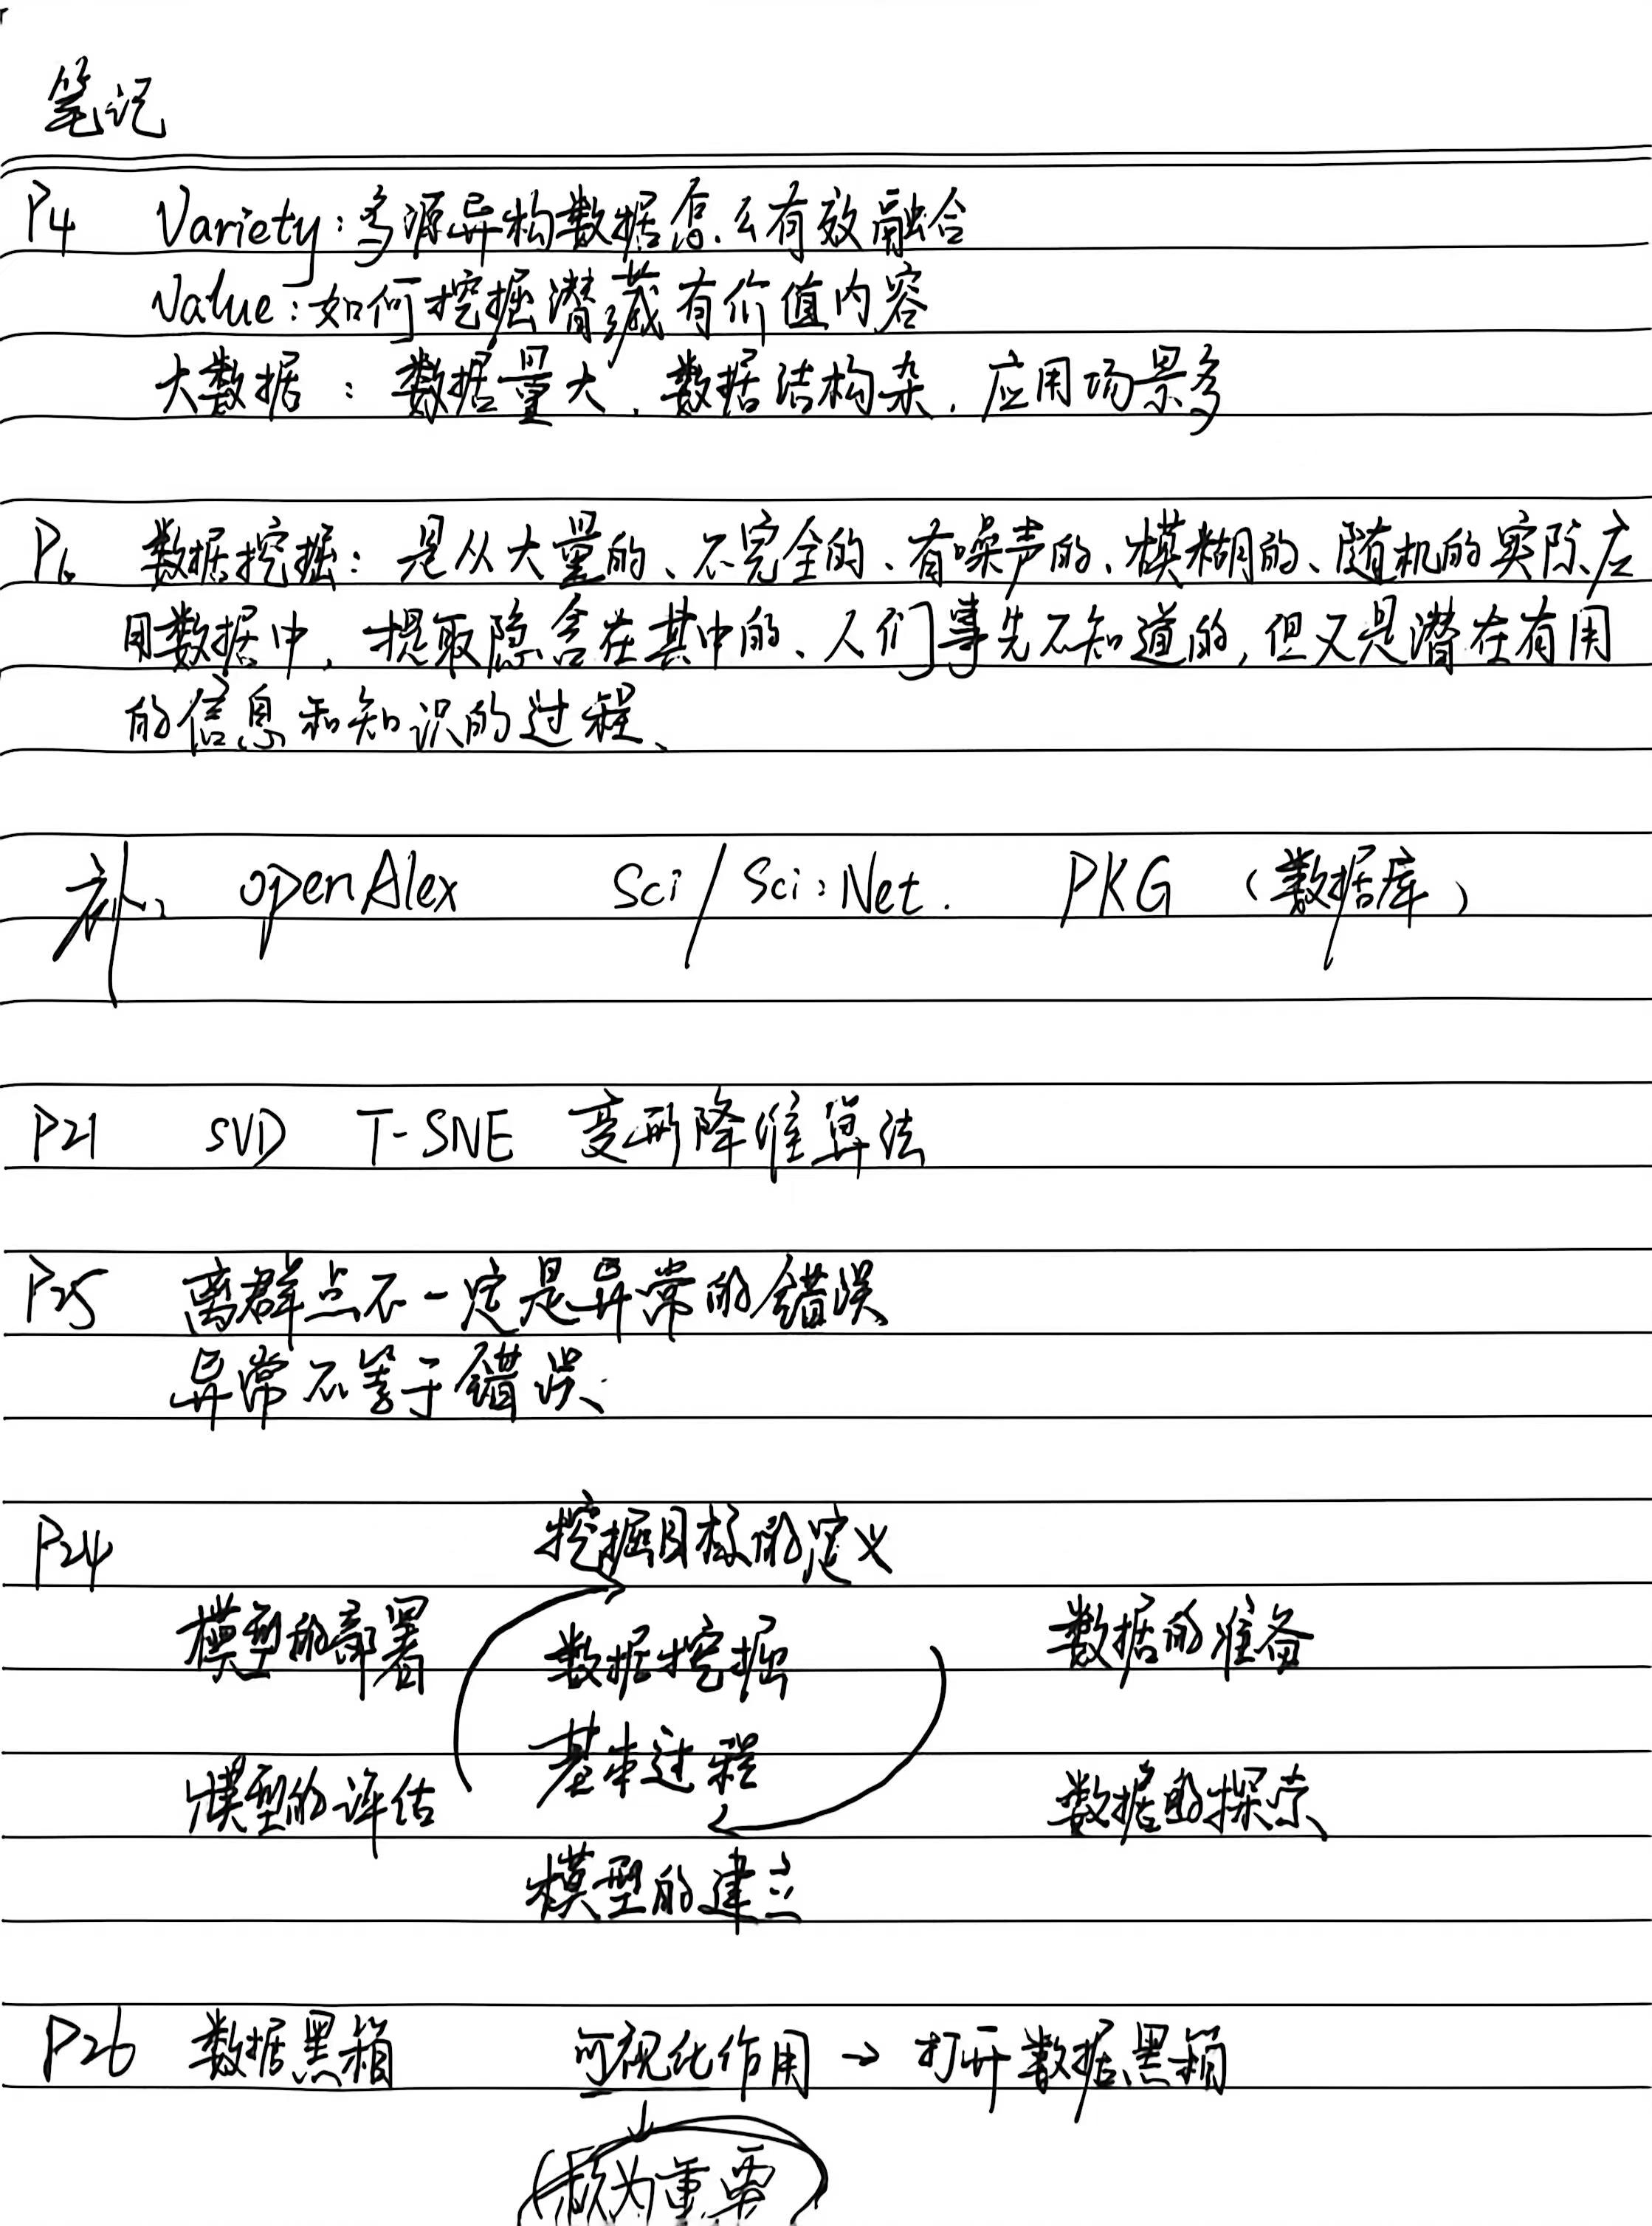 笔记
P4 Variety:多源异构数据怎么有效融合
Value:如何挖掘潜藏有价值内容
大数据:数据量大、数据结构杂、应用场景多
P6 数据挖掘:是从大量的、不完全的、有噪声的、模糊的、随机的实际应
用数据中,提取隐含在其中的、人们事先不知道的,但又是潜在有用
的信息和知识的过程、
补: openAlex Sci/Sci:Net. PKG (数据库)
P21 SVD T-SNE 变形降维算法
P25 离群点不一定是异常的错误
异常不等于错误、
P24 挖掘目标的定义
模型的部署 数据挖掘 数据的准备
基本过程
模型的评估 数据的探索
模型的建立
P26 数据黑箱 可视化作用 → 打开数据黑箱
↓
为重要